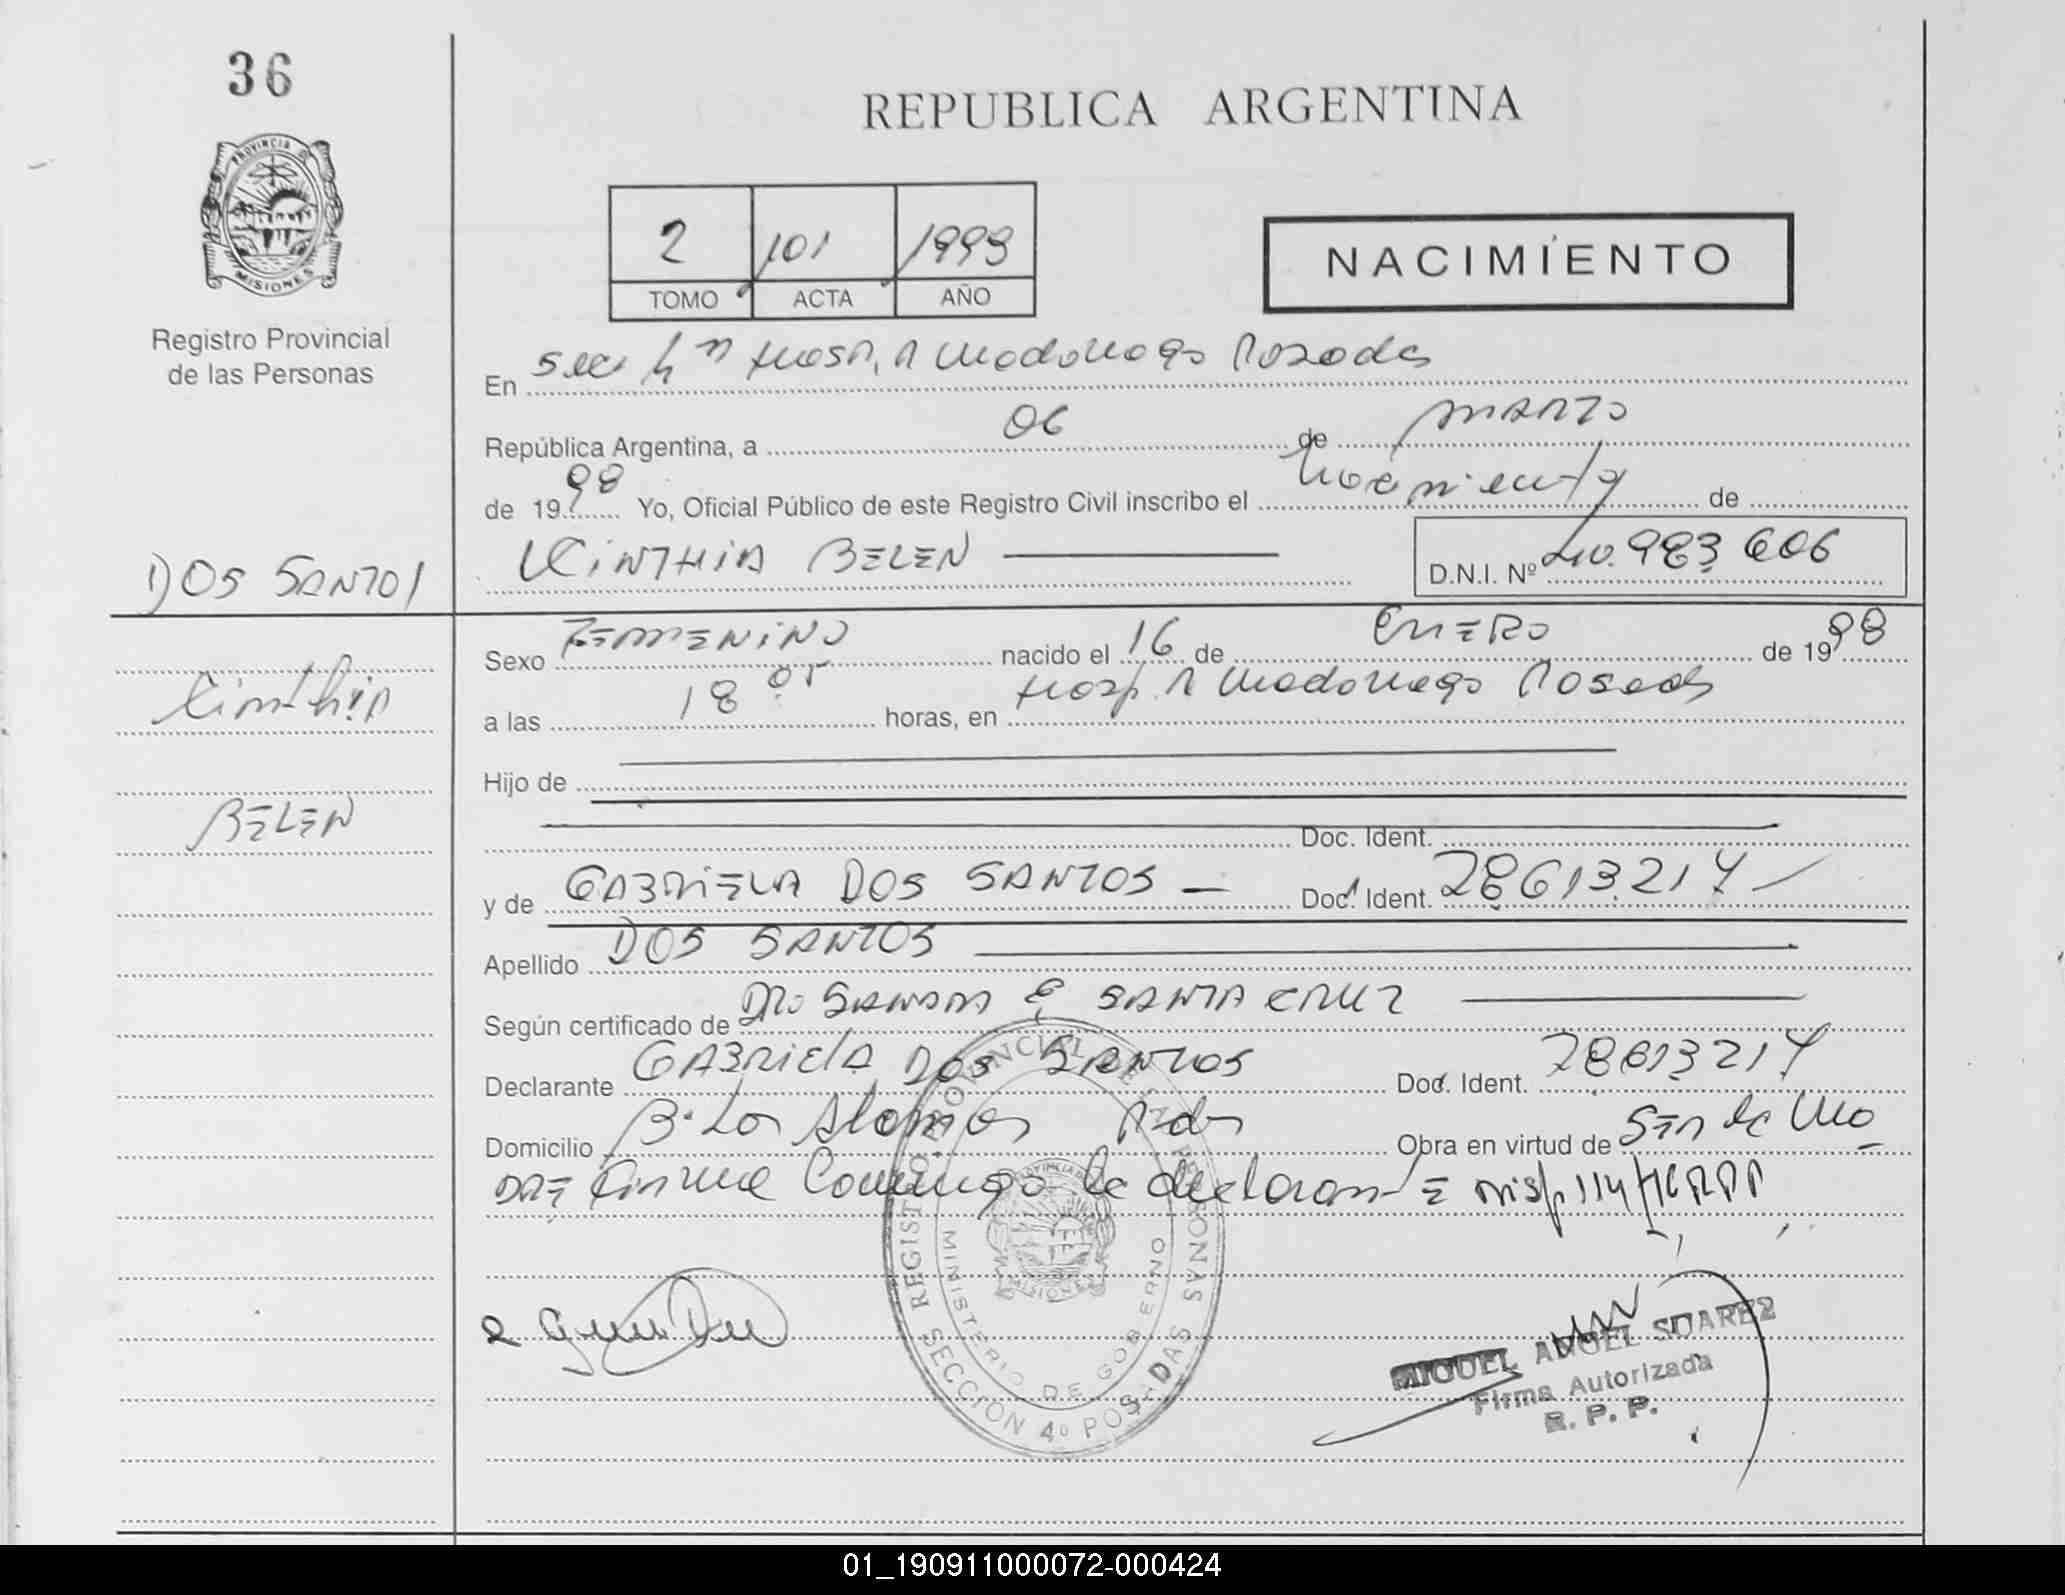 36
REPUBLICA ARGENTINA
PROVINCIA DE
MISIONES
Registro Provincial
de las Personas
2 101
TOMO ACTA AÑO
NACIMIENTO
En Secc 4ta Hosp. R Madariaga Posadas
República Argentina, a 06 de MARZO
de 1998 Yo, Oficial Público de este Registro Civil inscribo el nacimiento de
DOS SANTOS
KINTHIA BELEN
D.N.I. Nº 40.983 606
Cinthia
BELEN
Sexo FEMENINO nacido el 16 de ENERO de 1998
a las 18 05 horas, en Hosp. R Madariaga Posadas
Hijo de
Doc. Ident.
y de GABRIELA DOS SANTOS Doc. Ident. 28613217
Apellido DOS SANTOS
Según certificado de Dro SANDRA E SANTA CRUZ
Declarante GABRIELA DOS SANTOS Doc. Ident. 28613217
Domicilio B. Los Alamos Pdas Obra en virtud de Ser la Ma
DRE Firma Conmigo la declarante Disp 114/
REGISTRO PROVINCIAL DE LAS PERSONAS
PROVINCIA DE
MISIONES
MINISTERIO DE GOBIERNO
SECCION 4º POSADAS
MIGUEL ANGEL SUAREZ
Firma Autorizada
R. P. P.
01_190911000072-000424